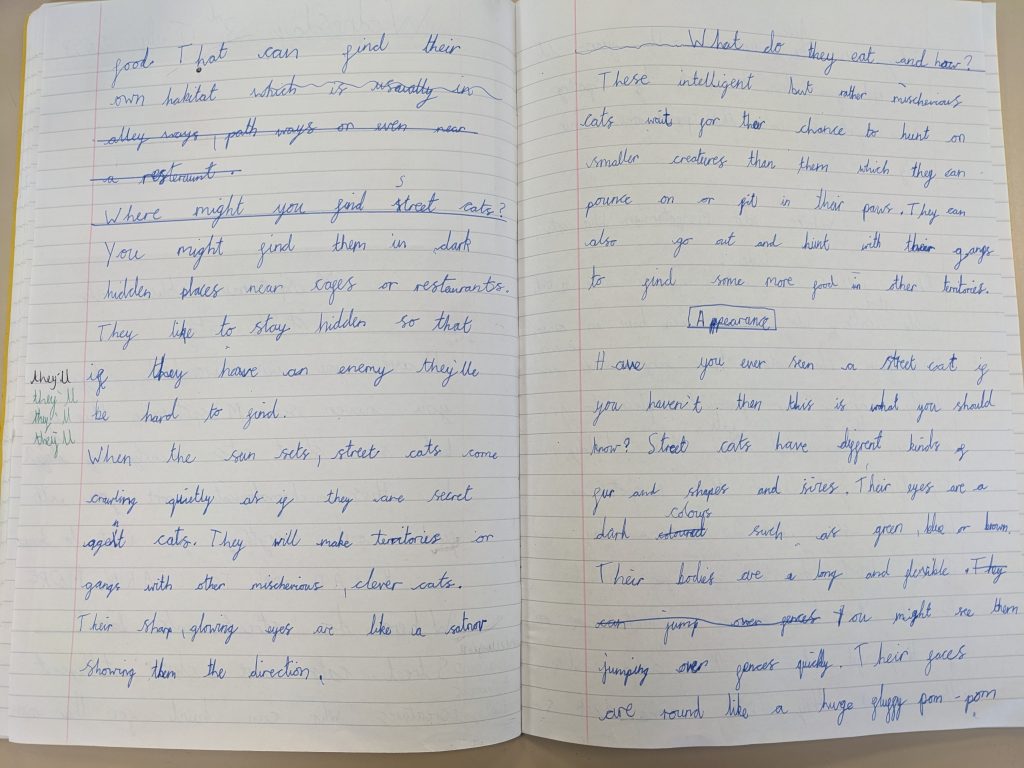 food. That can find their
own habitat which is usually in
alley ways, path ways or even near
a resteraunt.
s
Where might you find street cats?
You might find them in dark
hidden places near cafes or restaurants.
They like to stay hidden so that
if they have an enemy they'lle
be hard to find.
they'll
they'll
they'll
they'll
When the sun sets, street cats come
crawling quietly as if they are secret
n
agent cats. They will make territories or
gangs with other mischevious, clever cats.
Their sharp, glowing eyes are like a satnav
showing them the direction.
What do they eat and how?
These intelligent but rather mischevious
cats wait for their chance to hunt on
smaller creatures than them which they can
pounce on or fit in their paws. They can
also go out and hunt with their gangs
to find some more food in other territories.
Appearance
Have you ever seen a street cat if
you haven't then this is what you should
know? Street cats have different kinds of
fur and shapes and sizes. Their eyes are a
colours
dark coloured such as green, blue or brown.
Their bodies are a long and flexible. They
can jump over fences You might see them
jumping over fences quickly. Their faces
are round like a huge fluffy pom-pom